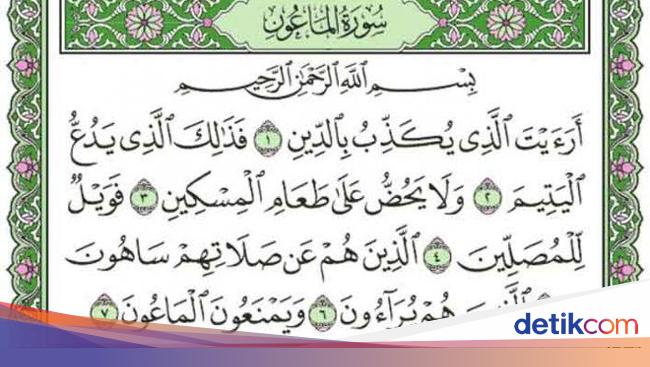 سُورَةُ الْمَاعُونِ
بِسْمِ اللَّهِ الرَّحْمَٰنِ الرَّحِيمِ
أَرَءَيْتَ الَّذِى يُكَذِّبُ بِالدِّينِ ١ فَذَٰلِكَ الَّذِى يَدُعُّ
الْيَتِيمَ ٢ وَلَا يَحُضُّ عَلَىٰ طَعَامِ الْمِسْكِينِ ٣ فَوَيْلٌ
لِّلْمُصَلِّينَ ٤ الَّذِينَ هُمْ عَن صَلَاتِهِمْ سَاهُونَ
هُمْ يُرَآءُونَ ٦ وَيَمْنَعُونَ الْمَاعُونَ ٧
detikcom